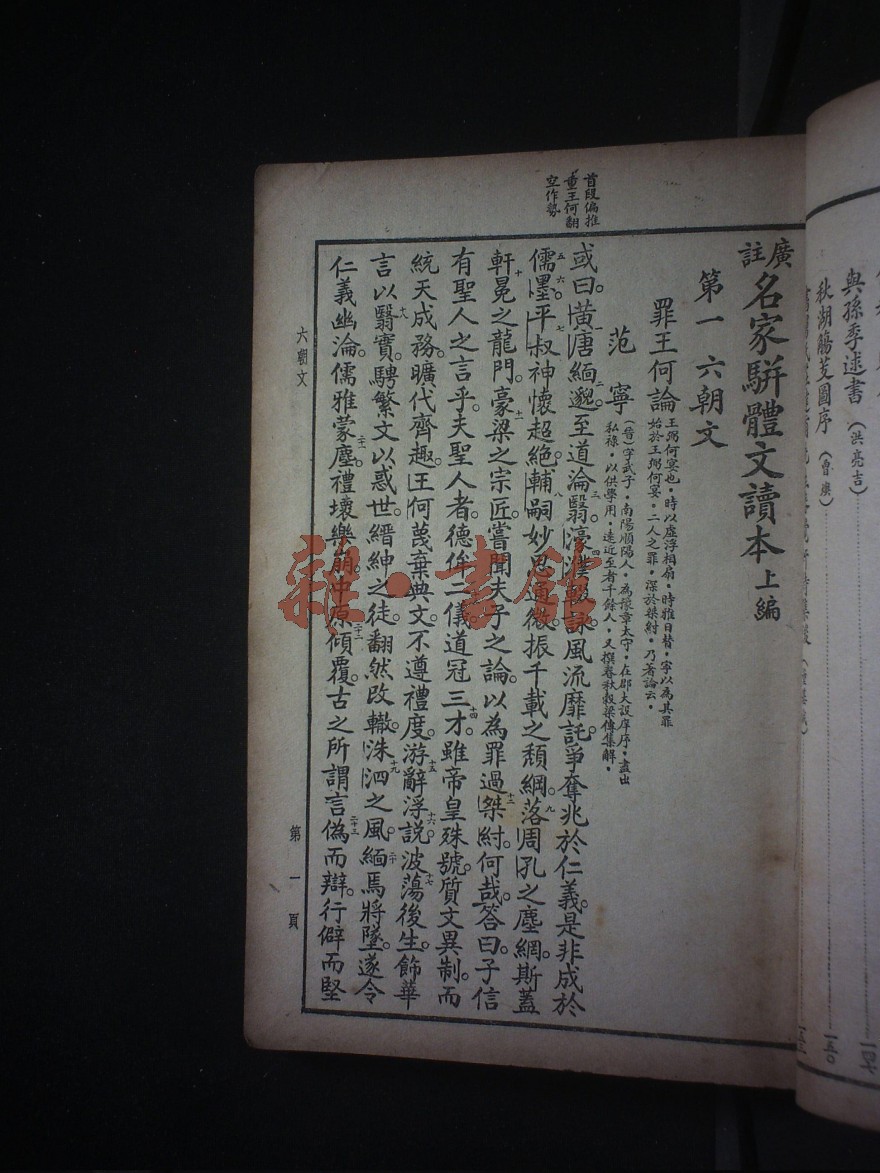 與孫季逑書（洪亮吉）
一四七
秋湖觴芰圖序（曾燠）
一五〇
首段偏推
重王何翻
空作勢
廣註名家駢體文讀本上編
第一 六朝文
罪王何論
王弼何宴也・時以虛浮相扇・時雅日替・寧以為其罪
始於王弼何宴・二人之罪・深於桀紂・乃著論云・
范寧
（晉）字武子・南陽順陽人・為豫章太守・在郡大設庠序・盡出
私祿・以供學用・遠近至者千餘人・又撰春秋穀梁傳集解・
或曰。黃唐緬邈。至道淪翳。濠濮輟詠。風流靡託。爭奪兆於仁義。是非成於
儒墨。平叔神懷超絕。輔嗣妙思通微。振千載之頹綱。落周孔之塵網。斯蓋
軒冕之龍門。豪梁之宗匠。嘗聞夫子之論。以為罪過桀紂。何哉。答曰。子信
有聖人之言乎。夫聖人者。德侔二儀。道冠三才。雖帝皇殊號。質文異制。而
統天成務。曠代齊趣。王何蔑棄典文。不遵禮度。游辭浮說。波蕩後生。飾華
言以翳實。騁繁文以惑世。縉紳之徒。翻然改轍。洙泗之風。緬焉將墜。遂令
仁義幽淪。儒雅蒙塵。禮壞樂崩。中原傾覆。古之所謂言偽而辯。行僻而堅
六朝文
第一頁
雜・書館